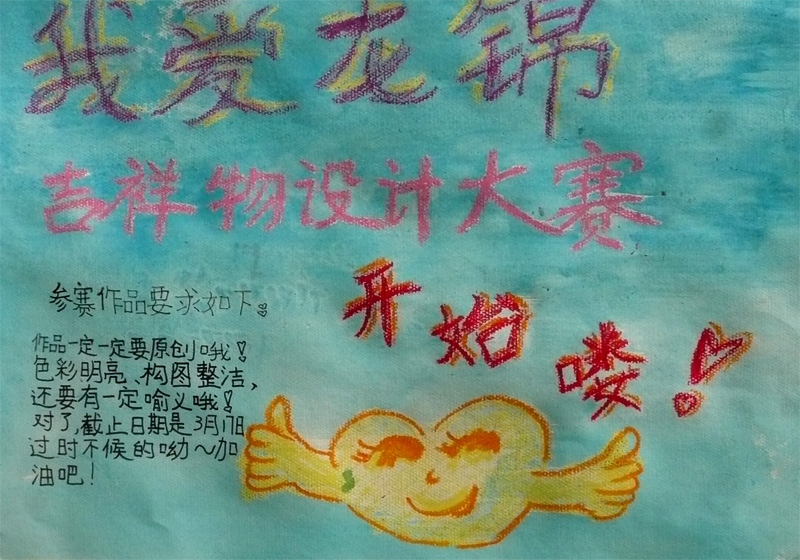 我爱龙锦
吉祥物设计大赛
开始喽！
参赛作品要求如下。
作品一定一定要原创哦！
色彩明亮、构图整洁，
还要有一定喻义哦！
对了，截止日期是3月17日
过时不候的呦～加
油吧！